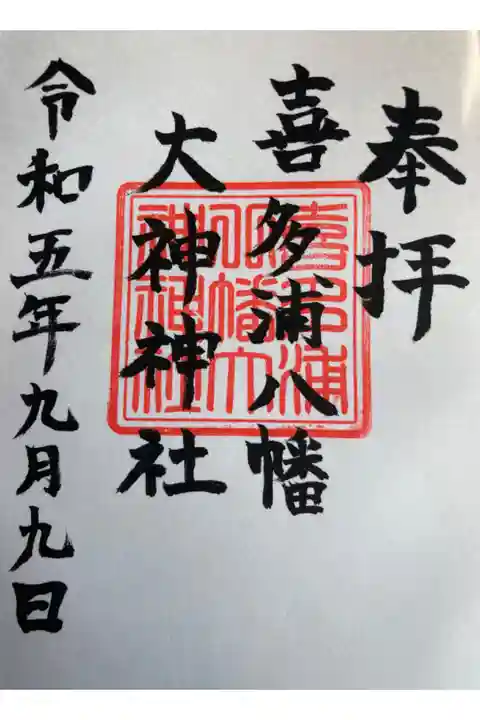 奉拝
喜多浦八幡
大神神社
喜多浦
八幡大
神神社
令和五年九月九日